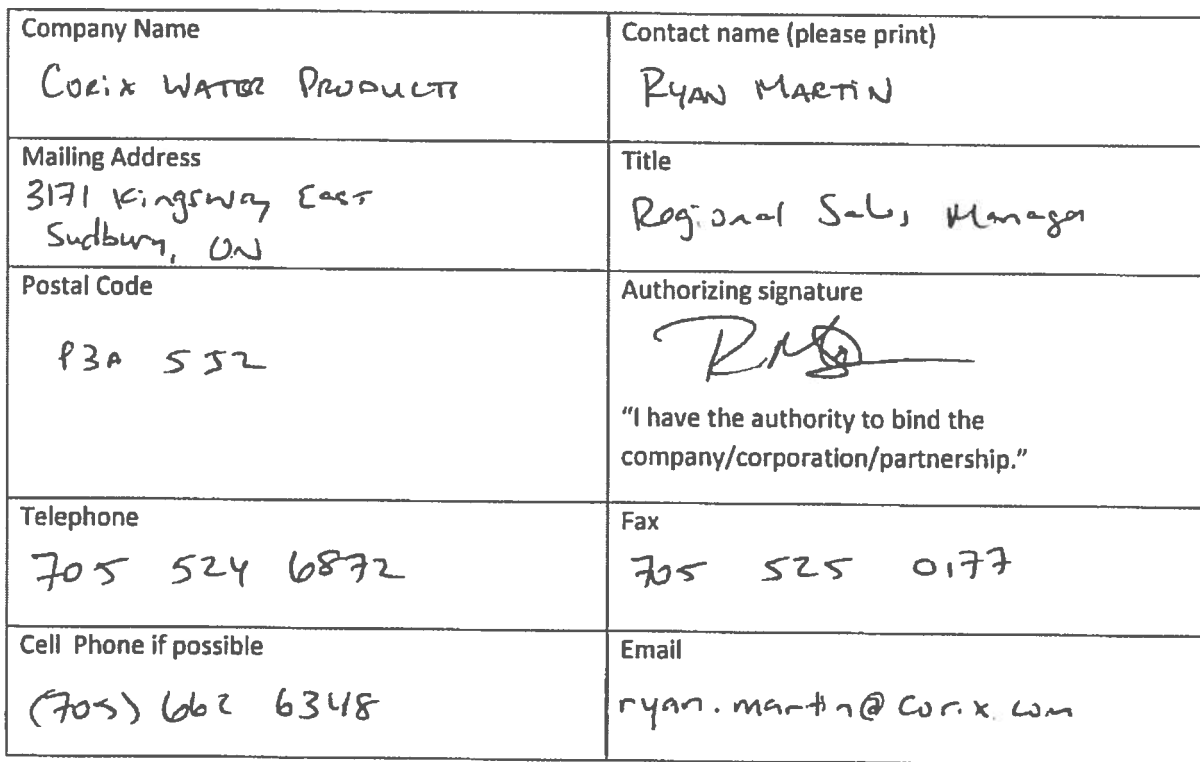 Company Name
CORIX WATER PRODUCTS
Contact name (please print)
RYAN MARTIN
Mailing Address
3171 Kingsway East
Sudbury, ON
Title
Regional Sales Manager
Postal Code
P3A 5J2
Authorizing signature
"I have the authority to bind the
company/corporation/partnership."
Telephone
705 524 6872
Fax
705 525 0177
Cell Phone if possible
(705) 662 6348
Email
ryan.martin@corix.com